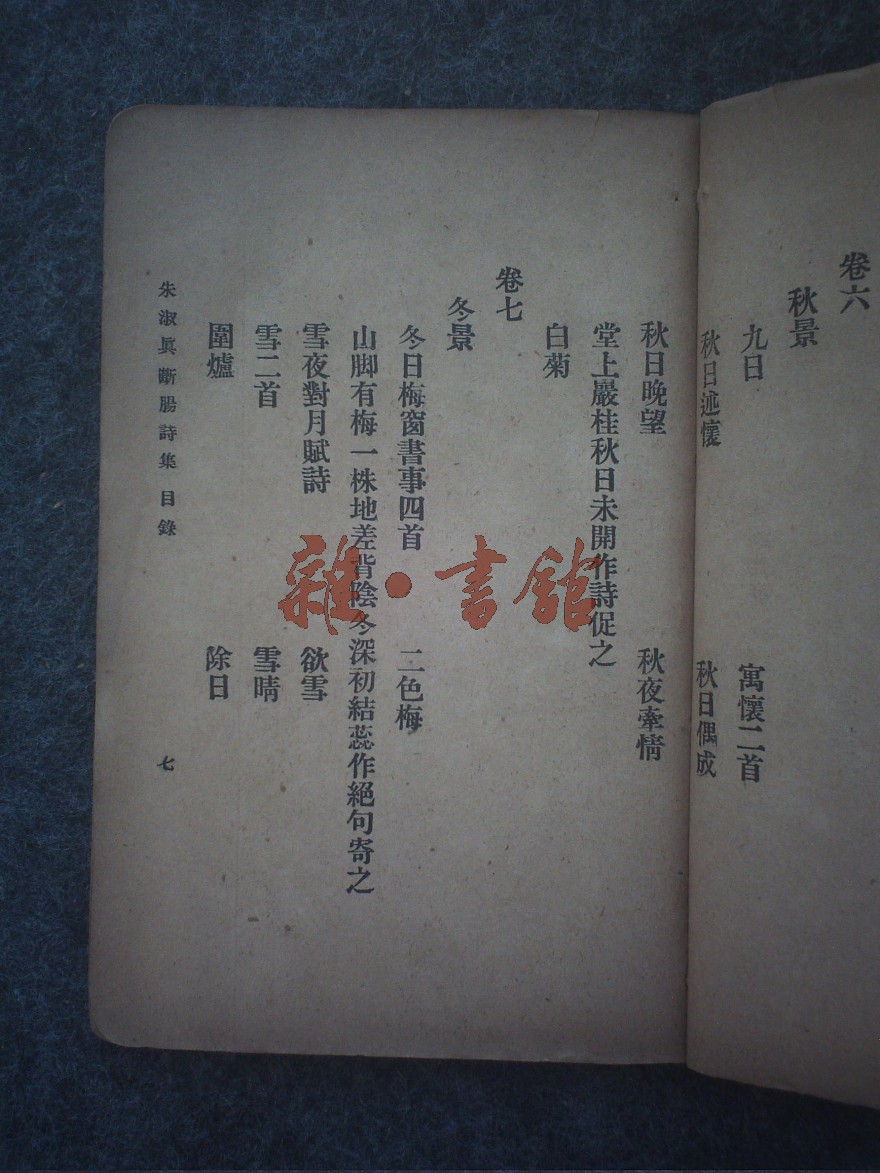 卷六
秋景
九日 寓懷二首
秋日述懷 秋日偶成
秋日晚望 秋夜牽情
堂上巖桂秋日未開作詩促之
白菊
卷七
冬景
冬日梅窗書事四首 二色梅
山脚有梅一株地差背陰冬深初結蕊作絕句寄之
雪夜對月賦詩 欲雪
雪二首 雪晴
圍爐 除日
朱淑眞斷腸詩集 目錄 七
雜·書館